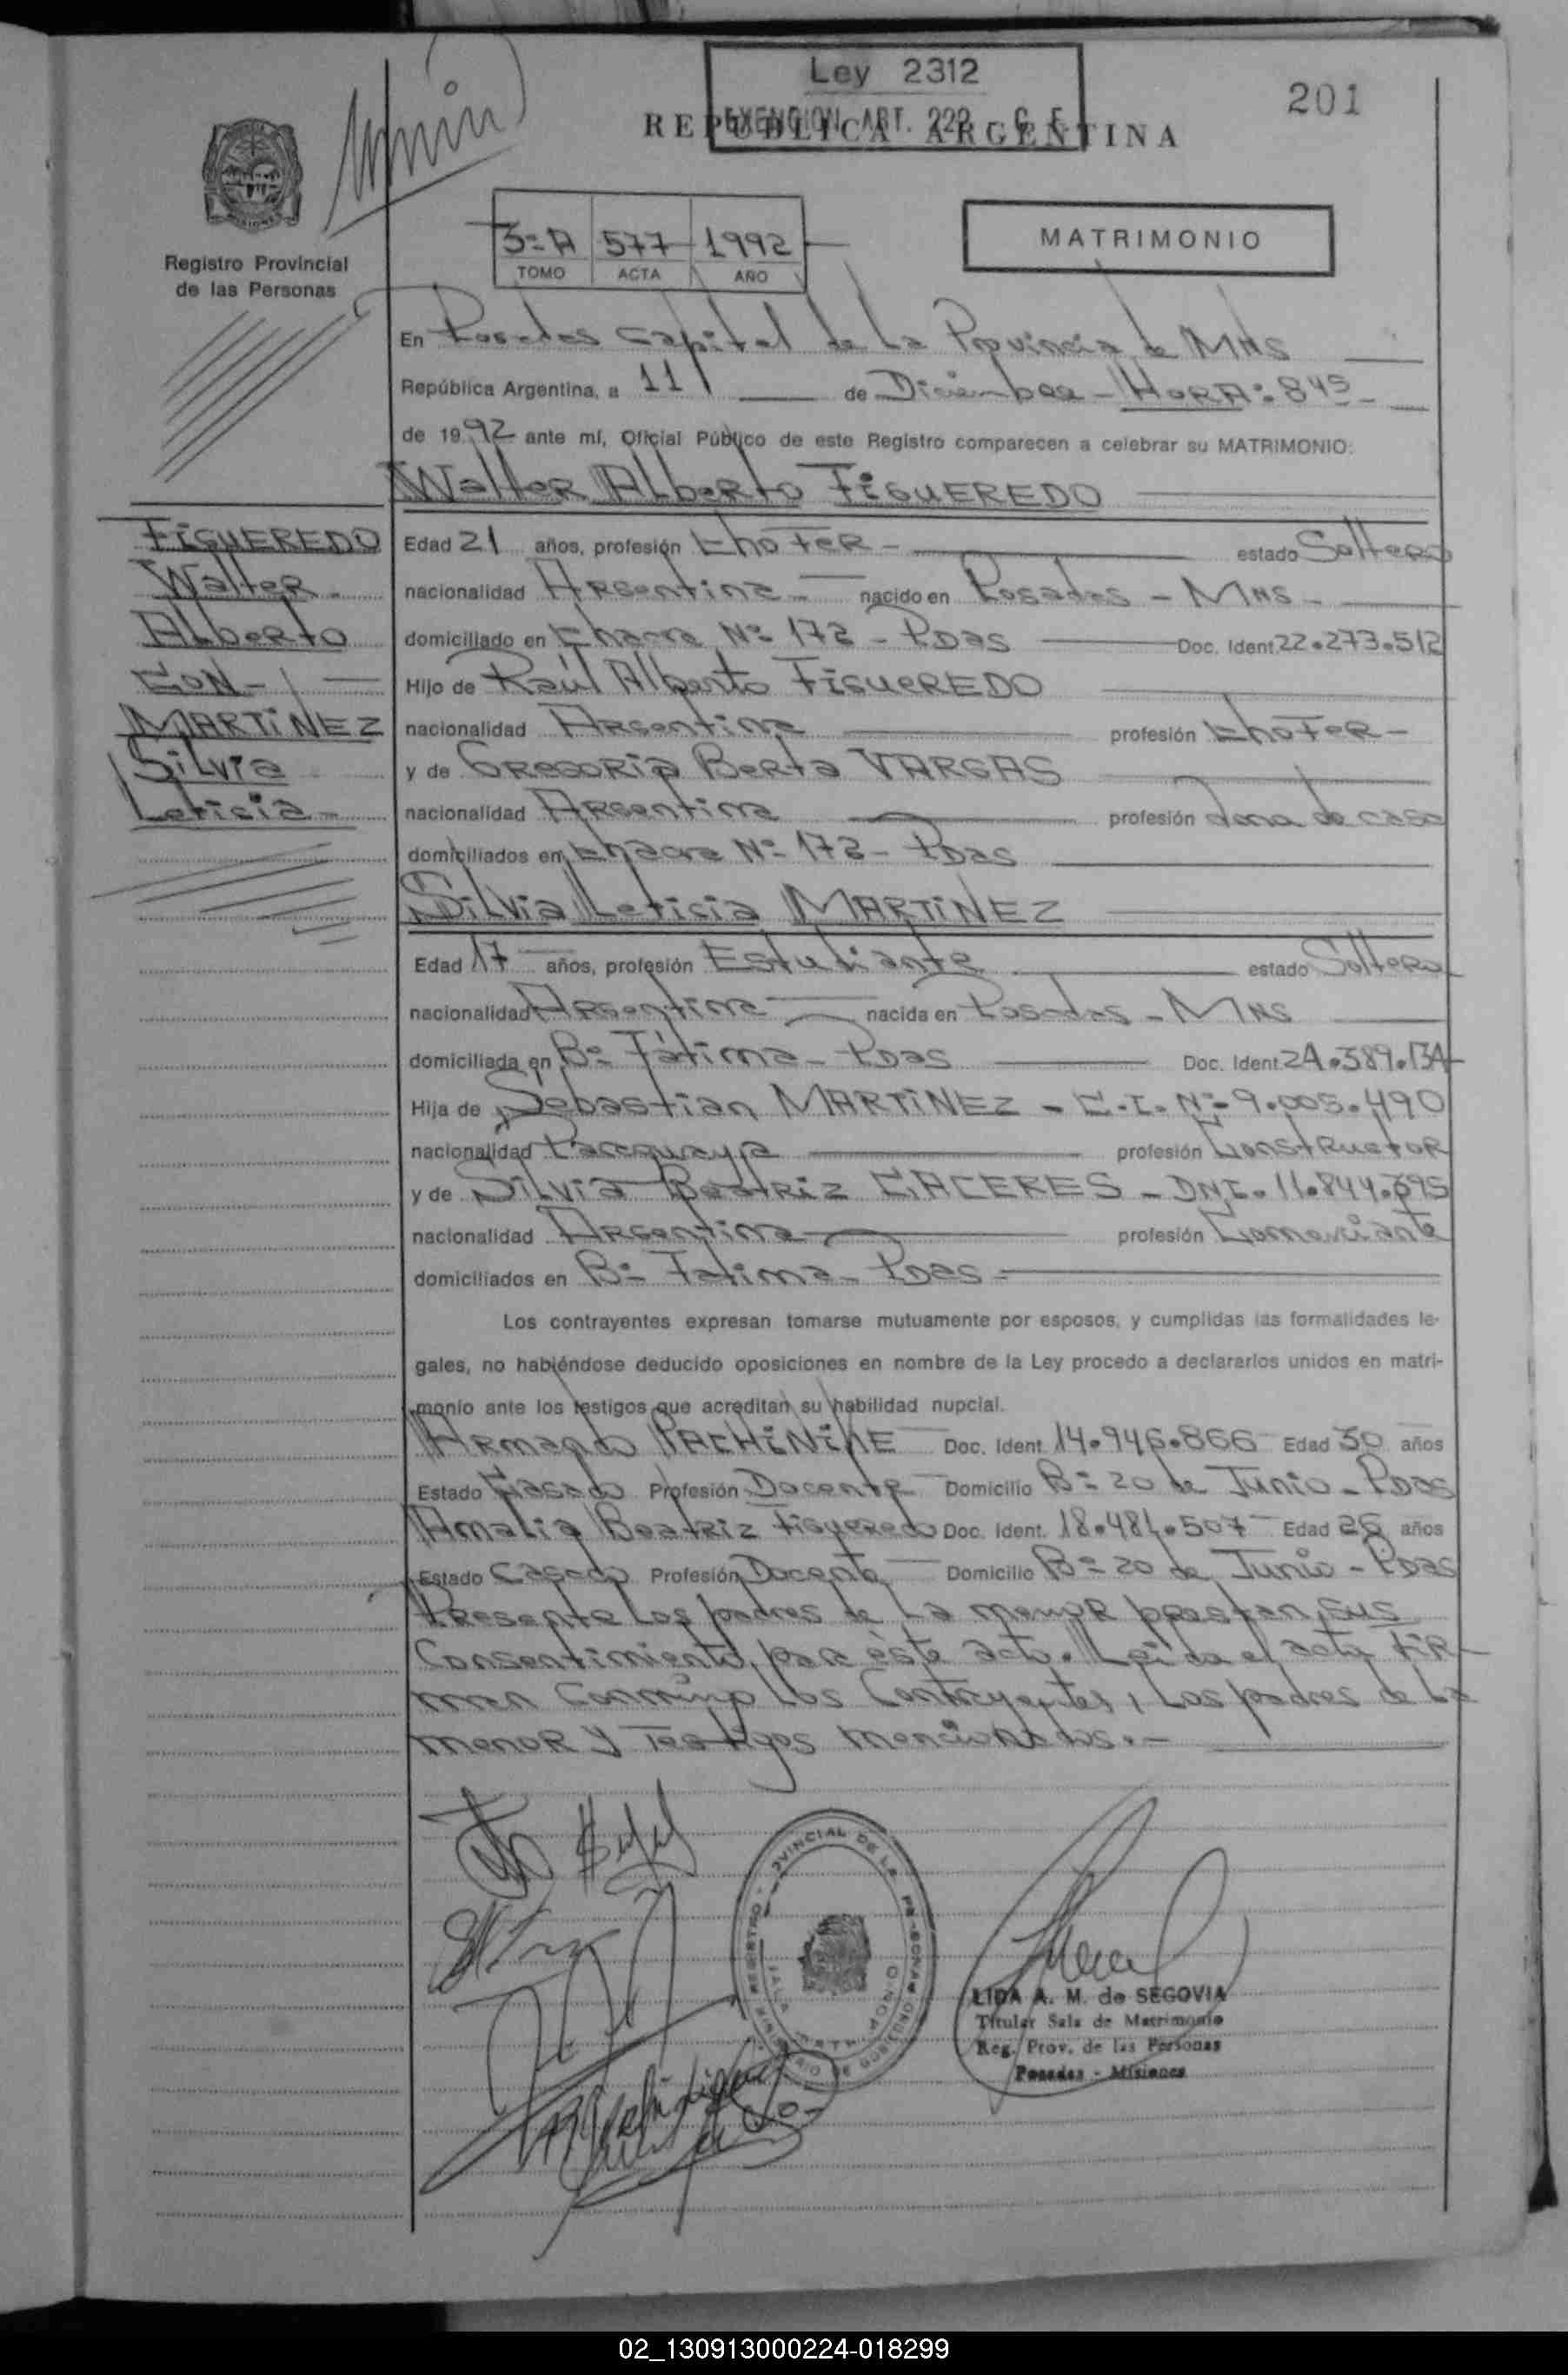 Ley 2312
EXENCION ART. 222 C. F.
201
REPUBLICA ARGENTINA
MATRIMONIO
3º A 577 1992
TOMO ACTA AÑO
Registro Provincial
de las Personas
En Posadas Capital de La Provincia de MNS
República Argentina, a 11 de Diciembre - HORA: 8 45 -
de 1992 ante mí, Oficial Público de este Registro comparecen a celebrar su MATRIMONIO:
Walter Alberto FIGUEREDO
FIGUEREDO
Walter
Alberto
CON -
MARTINEZ
Silvia
Leticia -
Edad 21 años, profesión Chofer - estado Soltero
nacionalidad Argentina - nacido en Posadas - MNS -
domiciliado en Chacra Nº 172 - PDas Doc. Ident 22.273.512
Hijo de Raúl Alberto FIGUEREDO
nacionalidad Argentina profesión Chofer -
y de Gregoria Berta VARGAS
nacionalidad Argentina profesión Ama de casa
domiciliados en Chacra Nº 172 - PDas
Silvia Leticia MARTINEZ
Edad 17 años, profesión Estudiante estado Soltera
nacionalidad Argentina nacida en Posadas - MNS
domiciliada en Bº Fátima - PDas Doc. Ident 24.389.134
Hija de Sebastian MARTINEZ - C.I. Nº 9.005.490
nacionalidad Paraguaya profesión Constructor
y de Silvia Beatriz CACERES - DNI. 11.844.395
nacionalidad Argentina profesión Comerciante
domiciliados en Bº Fatima - PDas -
Los contrayentes expresan tomarse mutuamente por esposos, y cumplidas las formalidades le-
gales, no habiéndose deducido oposiciones en nombre de la Ley procedo a declararlos unidos en matri-
monio ante los testigos que acreditan su habilidad nupcial.
Armando Doc. Ident. 14.946.866 Edad 30 años
Estado Casado Profesión Docente Domicilio Bº 20 de Junio - PDas
Amalia Beatriz Figueredo Doc. Ident. 18.481.507 Edad 26 años
Estado Casado Profesión Docente Domicilio Bº 20 de Junio - PDas
Presente Los padres de La menor prestan sus
Consentimiento para éste acto. Leída el acta FIR-
man Conmigo Los Contrayentes, Los padres de La
menor y Testigos mencionados. -
LIDA A. M. de SEGOVIA
Titular Sala de Matrimonio
Reg. Prov. de las Personas
Posadas - Misiones
02_130913000224-018299